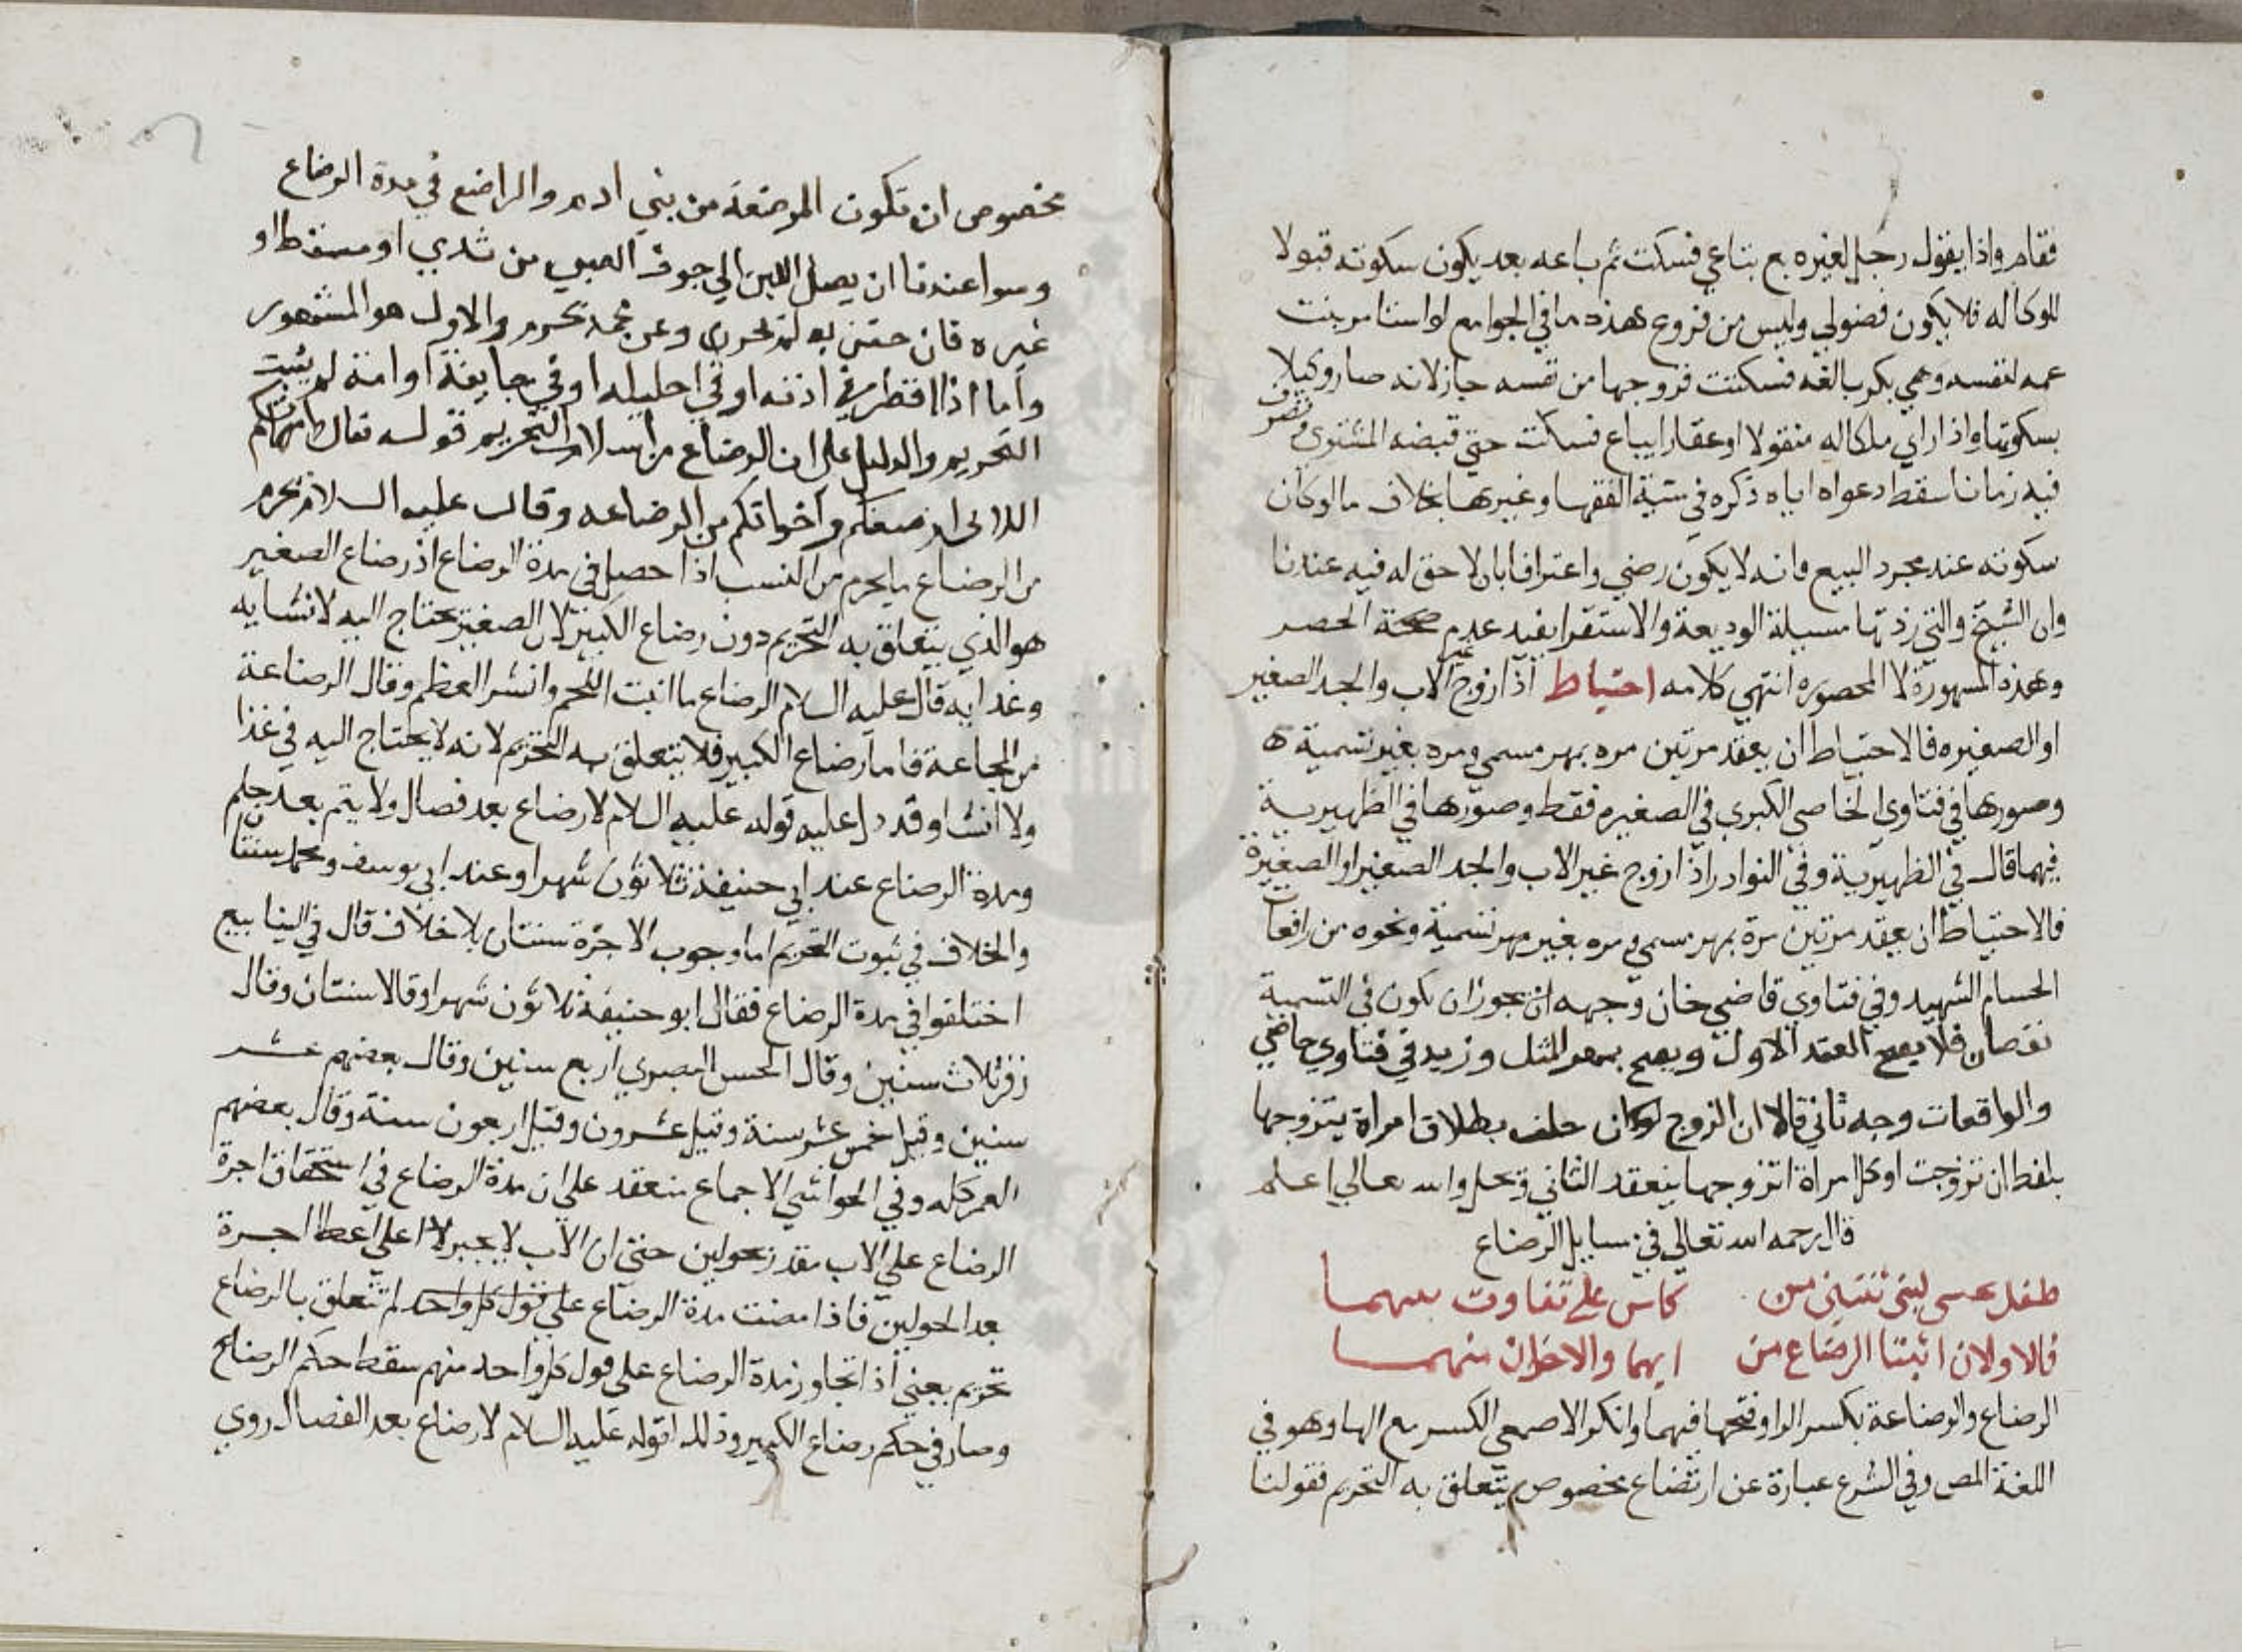 فقام واذا يقول رجل لغيره بع متاعي فسكت ثم باعه بعد يكون سكوته قبولا
للوكاله فلا يكون فضولي وليس من فروع هذه ما في الجوامع لو استامر بنت
عمه لنفسه وهي بكر بالغه فسكتت فزوجها من نفسه جاز لانه صار وكيلا
بسكوتها واذا راي ملكا له منقولا او عقارا يباع فسكت حتي قبضه المشتري وتصرف
فيه زمانا سقط دعواه اياه ذكره في منية الفقها وغيرها بخلاف ما لو كان
سكوته عند مجرد البيع فانه لا يكون رضي واعترافا بان لا حق له فيه عندنا
وان الشيخ والتي زدتها مسيلة الوديعة والاستقرا يفيد عدم صحة الحصر
وهذه المشهورة لا المحصوره انتهي كلامه احتياط اذا زوج غير الاب والجد الصغير
او الصغيره فالاحتياط ان يعقد مرتين مره بمهر مسمي ومره بغير تسمية
وصورها في فتاوي الخاصي الكبري في الصغيره فقط وصورها في الظهيرية
فيهما قال في الظهيرية وفي النوادر اذا زوج غير الاب والجد الصغير او الصغيرة
فالاحتياط ان يعقد مرتين مرة بمهر مسمي ومره بغير مهر تسمية ونحوه من واقعات
الحسام الشهيد وفي فتاوي قاضي خان وجهه انه يجوز ان يكون في التسمية
نقصان فلا يصح العقد الاول ويصح بمهر المثل وزيد في فتاوي خاصي
والواقعات وجه ثاني قالا ان الزوج لو كان حلف بطلاق امراة يتزوجها
بلفظ ان تزوجت او كل امراة اتزوجها ينعقد الثاني وتحل والله تعالي اعلم
قال رحمه الله تعالي في مسايل الرضاع
طفل حسي لبني ثنتين من كاس علي تفاوت بينهما
فالاولان اثبتا الرضاع من ايهما والاخران منهما
الرضاع والرضاعة بكسر الرا وفتحها فيهما وانكر الاصمعي الكسر مع الها وهو في
اللغة المص وفي الشرع عبارة عن ارتضاع مخصوص يتعلق به التحريم فقولنا
مخصوص ان تكون المرضعة من بني ادم والراضع في مدة الرضاع
وسوا عندنا ان يصل اللبن الي جوف الصبي من ثدي او مسقط او
غيره فان حقن به لم تحرم وعن محمد تحرم والاول هو المشهور
واما اذا اقطر في اذنه او في احليله او في جايفة او امة لم يثبت
التحريم والدليل علي ان الرضاع من اسباب التحريم قوله تعالي وامهاتكم
اللاتي ارضعنكم واخواتكم من الرضاعه وقال عليه السلام يحرم
من الرضاع ما يحرم من النسب اذا حصل في مدة الرضاع اذ رضاع الصغير
هو الذي يتعلق به التحريم دون رضاع الكبير لان الصغير يحتاج اليه لانشايه
وغدايه قال عليه السلام الرضاع ما انبت اللحم وانشر العظم وقال الرضاعة
من المجاعة فاما رضاع الكبير فلا يتعلق به التحريم لانه لا يحتاج اليه في غذا
ولا انشا وقد دل عليه قوله عليه السلام لا رضاع بعد فصال ولا يتم بعد حلم
ومدة الرضاع عند ابي حنيفة ثلاثون شهرا وعند ابي يوسف ومحمد سنتان
والخلاف في ثبوت التحريم اما وجوب الاجرة سنتان بلا خلاف قال في الينابيع
اختلفوا في مدة الرضاع فقال ابو حنيفة ثلاثون شهرا وقالا سنتان وقال
زفر ثلاث سنين وقال الحسن البصري اربع سنين وقال بعضهم عشر
سنين وقيل خمس عشر سنة وقيل عشرون وقيل اربعون سنة وقال بعضهم
العمر كله وفي الحواشي الاجماع منعقد علي ان مدة الرضاع في استحقاق اجرة
الرضاع علي الاب مقدر بحولين حتي ان الاب لا يجبر لا علي اعطا اجرة
بعد الحولين فاذا مضت مدة الرضاع علي قول كل واحد لم تتعلق بالرضاع
تحريم يعني اذا تجاوز مدة الرضاع علي قول كل واحد منهم سقط حكم الرضاع
وصار في حكم رضاع الكبير وذلك لقوله عليه السلام لا رضاع بعد الفصال روي